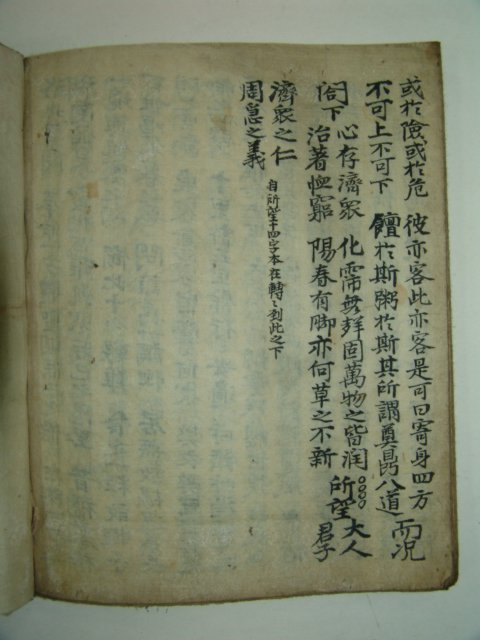 或於險或於危 彼亦客此亦客是可曰寄身四方
不可上不可下 饘於斯粥於斯其所謂奠鼎八道 而況
閤下
心存濟衆 化霈無固萬物之皆潤
治著恤窮 陽春有脚亦何草之不新
所望
大人
君子
濟衆之仁
周急之義
自所望十四字本在轉〻到此之下